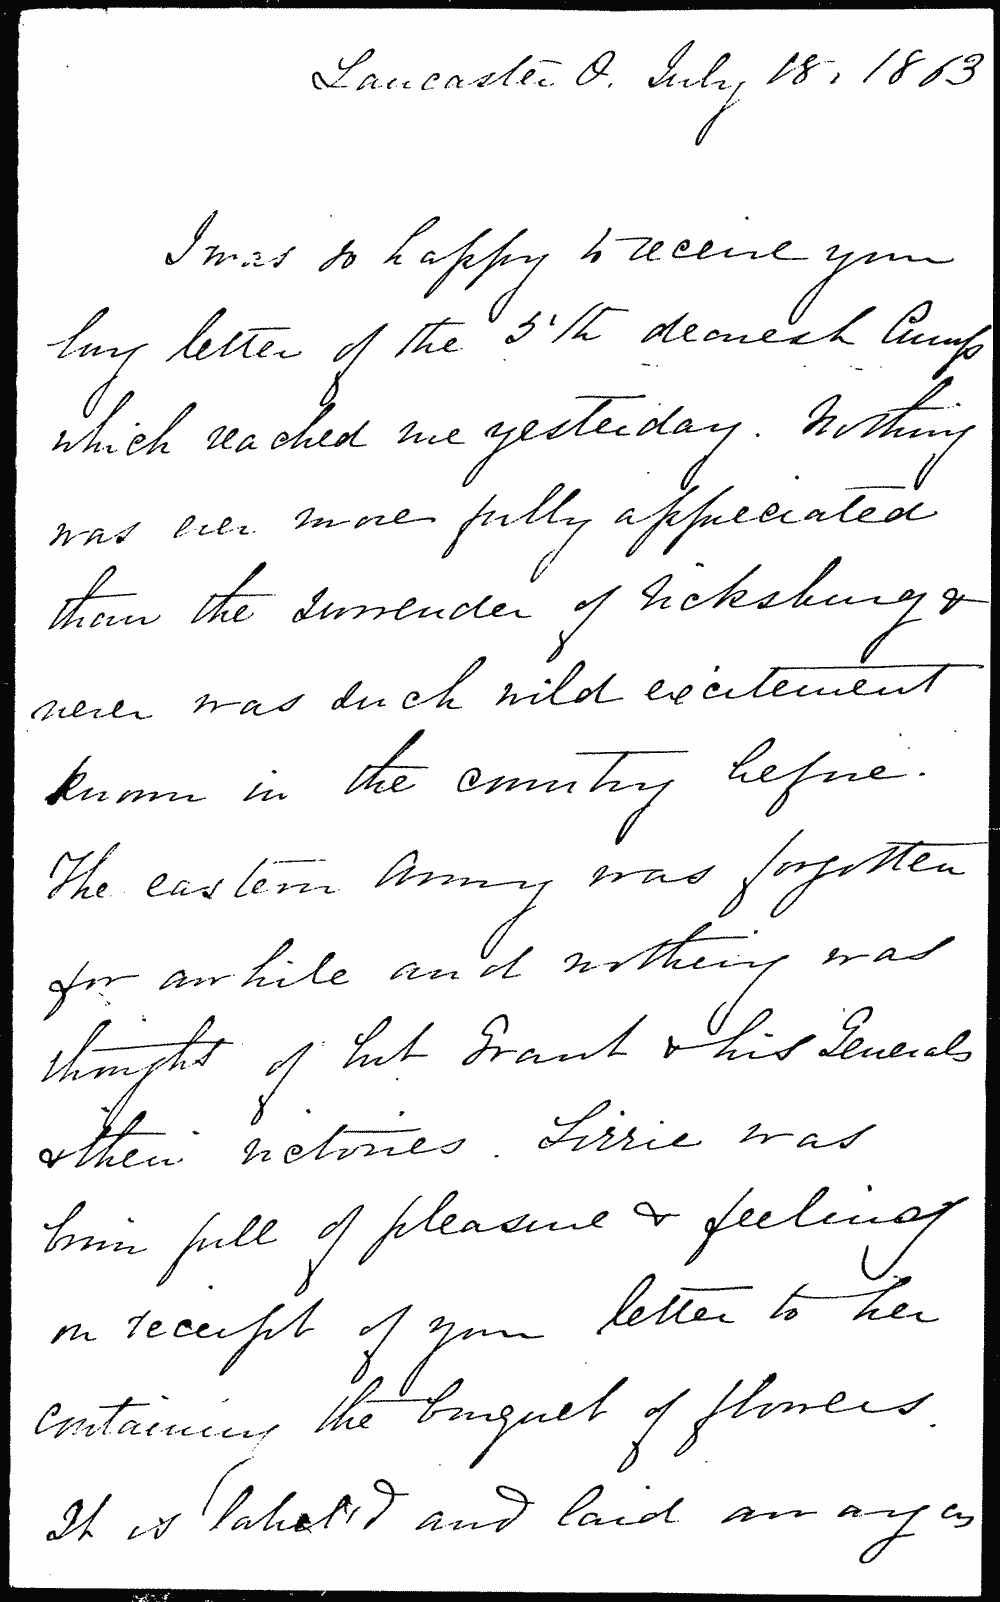 Lancaster O. July 18, 1863
I was so happy to receive your
long letter of the 5th dearest Cump
which reached me yesterday. Nothing
was ever more fully appreciated
than the surrender of Vicksburg &
never was such wild excitement
known in the country before.
The eastern Army was forgotten
for awhile and nothing was
thought of but Grant & his Generals
& their victories. Lizzie was
brim full of pleasure & feeling
on receipt of your letter to her
containing the boquet of flowers.
It is label'd and laid away as